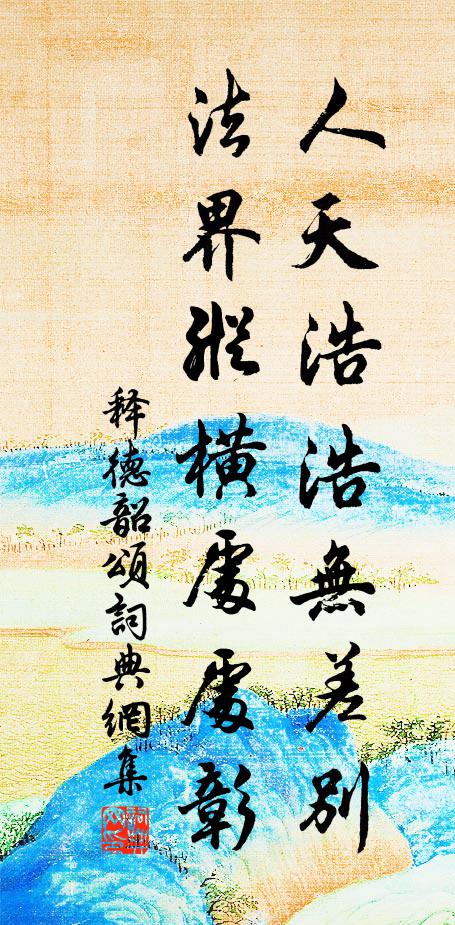 人天浩浩無差别
法界縱橫處處彰
释德韶頌詞典網集